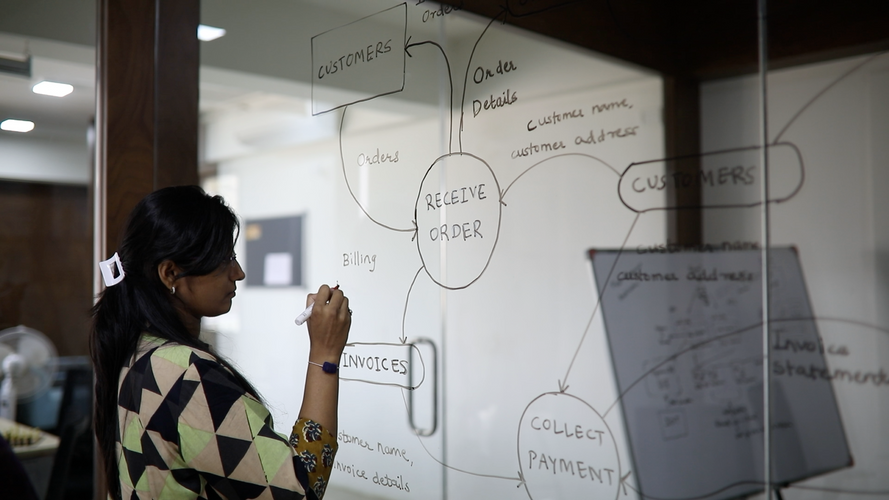 Order
CUSTOMERS
Order
Details
Customer name,
customer address
Orders
RECEIVE
ORDER
CUSTOMERS
Billing
customer name
customer address
INVOICES
Invoice
statement
COLLECT
PAYMENT
name,
invoice details